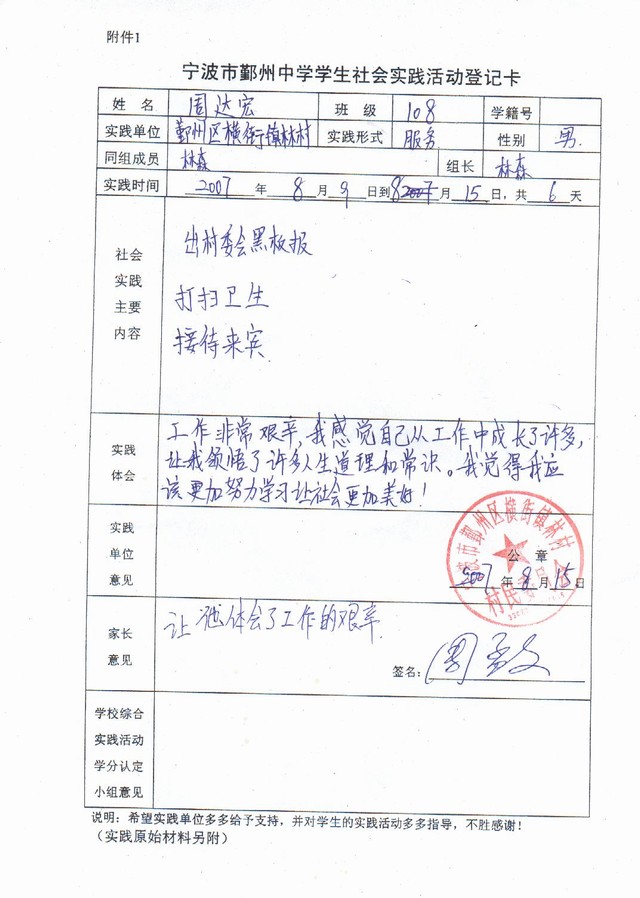 附件1
宁波市鄞州中学学生社会实践活动登记卡
姓名 周达宏 班级 108 学籍号
实践单位 鄞州区横街镇林村 实践形式 服务 性别 男
同组成员 林森 组长 林森
实践时间 2007 年 8 月 9 日到 8 月 15 日，共 6 天
社会实践主要内容
出村委会黑板报
打扫卫生
接待来宾
实践体会
工作非常艰辛，我感觉自己从工作中成长了许多，
让我领悟了许多人生道理和常识。我觉得我应
该更加努力学习让社会更加美好！
实践单位意见
宁波市鄞州区横街镇林村
村民委员会
公章
2007 年 8 月 15 日
家长意见
让他体会了工作的艰辛
签名：周
学校综合
实践活动
学分认定
小组意见
说明：希望实践单位多多给予支持，并对学生的实践活动多多指导，不胜感谢！
（实践原始材料另附）